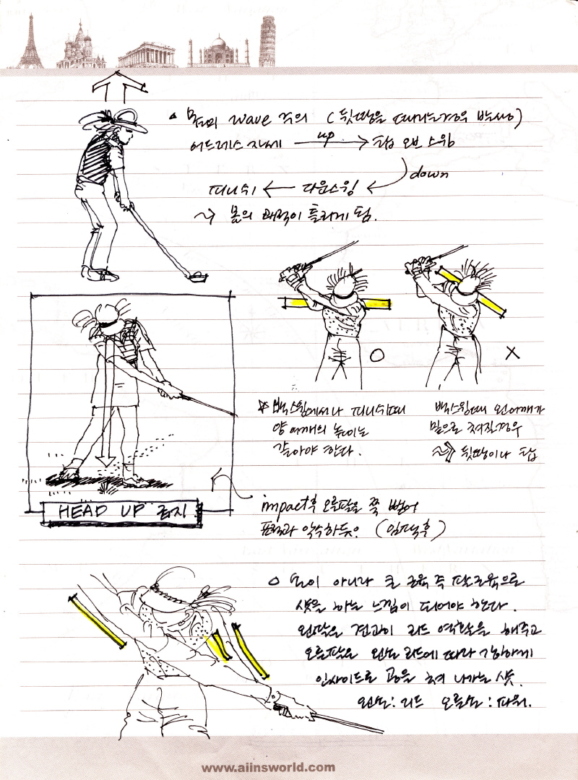 몸의 wave 주의 (뒷땅을 때리는 경우 발생)
어드레스 자세 up → 탑 오브 스윙
down
피니쉬 ← 다운스윙 ←
몸의 balance
O
X
※ 백스윙에서나 피니쉬때
양 어깨의 높이는
같아야 한다.
백스윙때 왼어깨가
밑으로 쳐진 경우
⇒ 뒷땅이나 탑
HEAD UP 금지
impact후 오른팔을 쭉 뻗어
악수하듯이 (임팩후)
○ 손이 아니라 큰 근육 즉 팔근육으로
샷을 하는 느낌이 되어야 한다.
왼팔은 전적인 리드 역할을 해주고
오른팔은 왼손 리드에 따라 강하게
인사이드로 공을 쳐 나가는 샷.
왼손: 리드 오른손: 파워.
www.aiinsworld.com